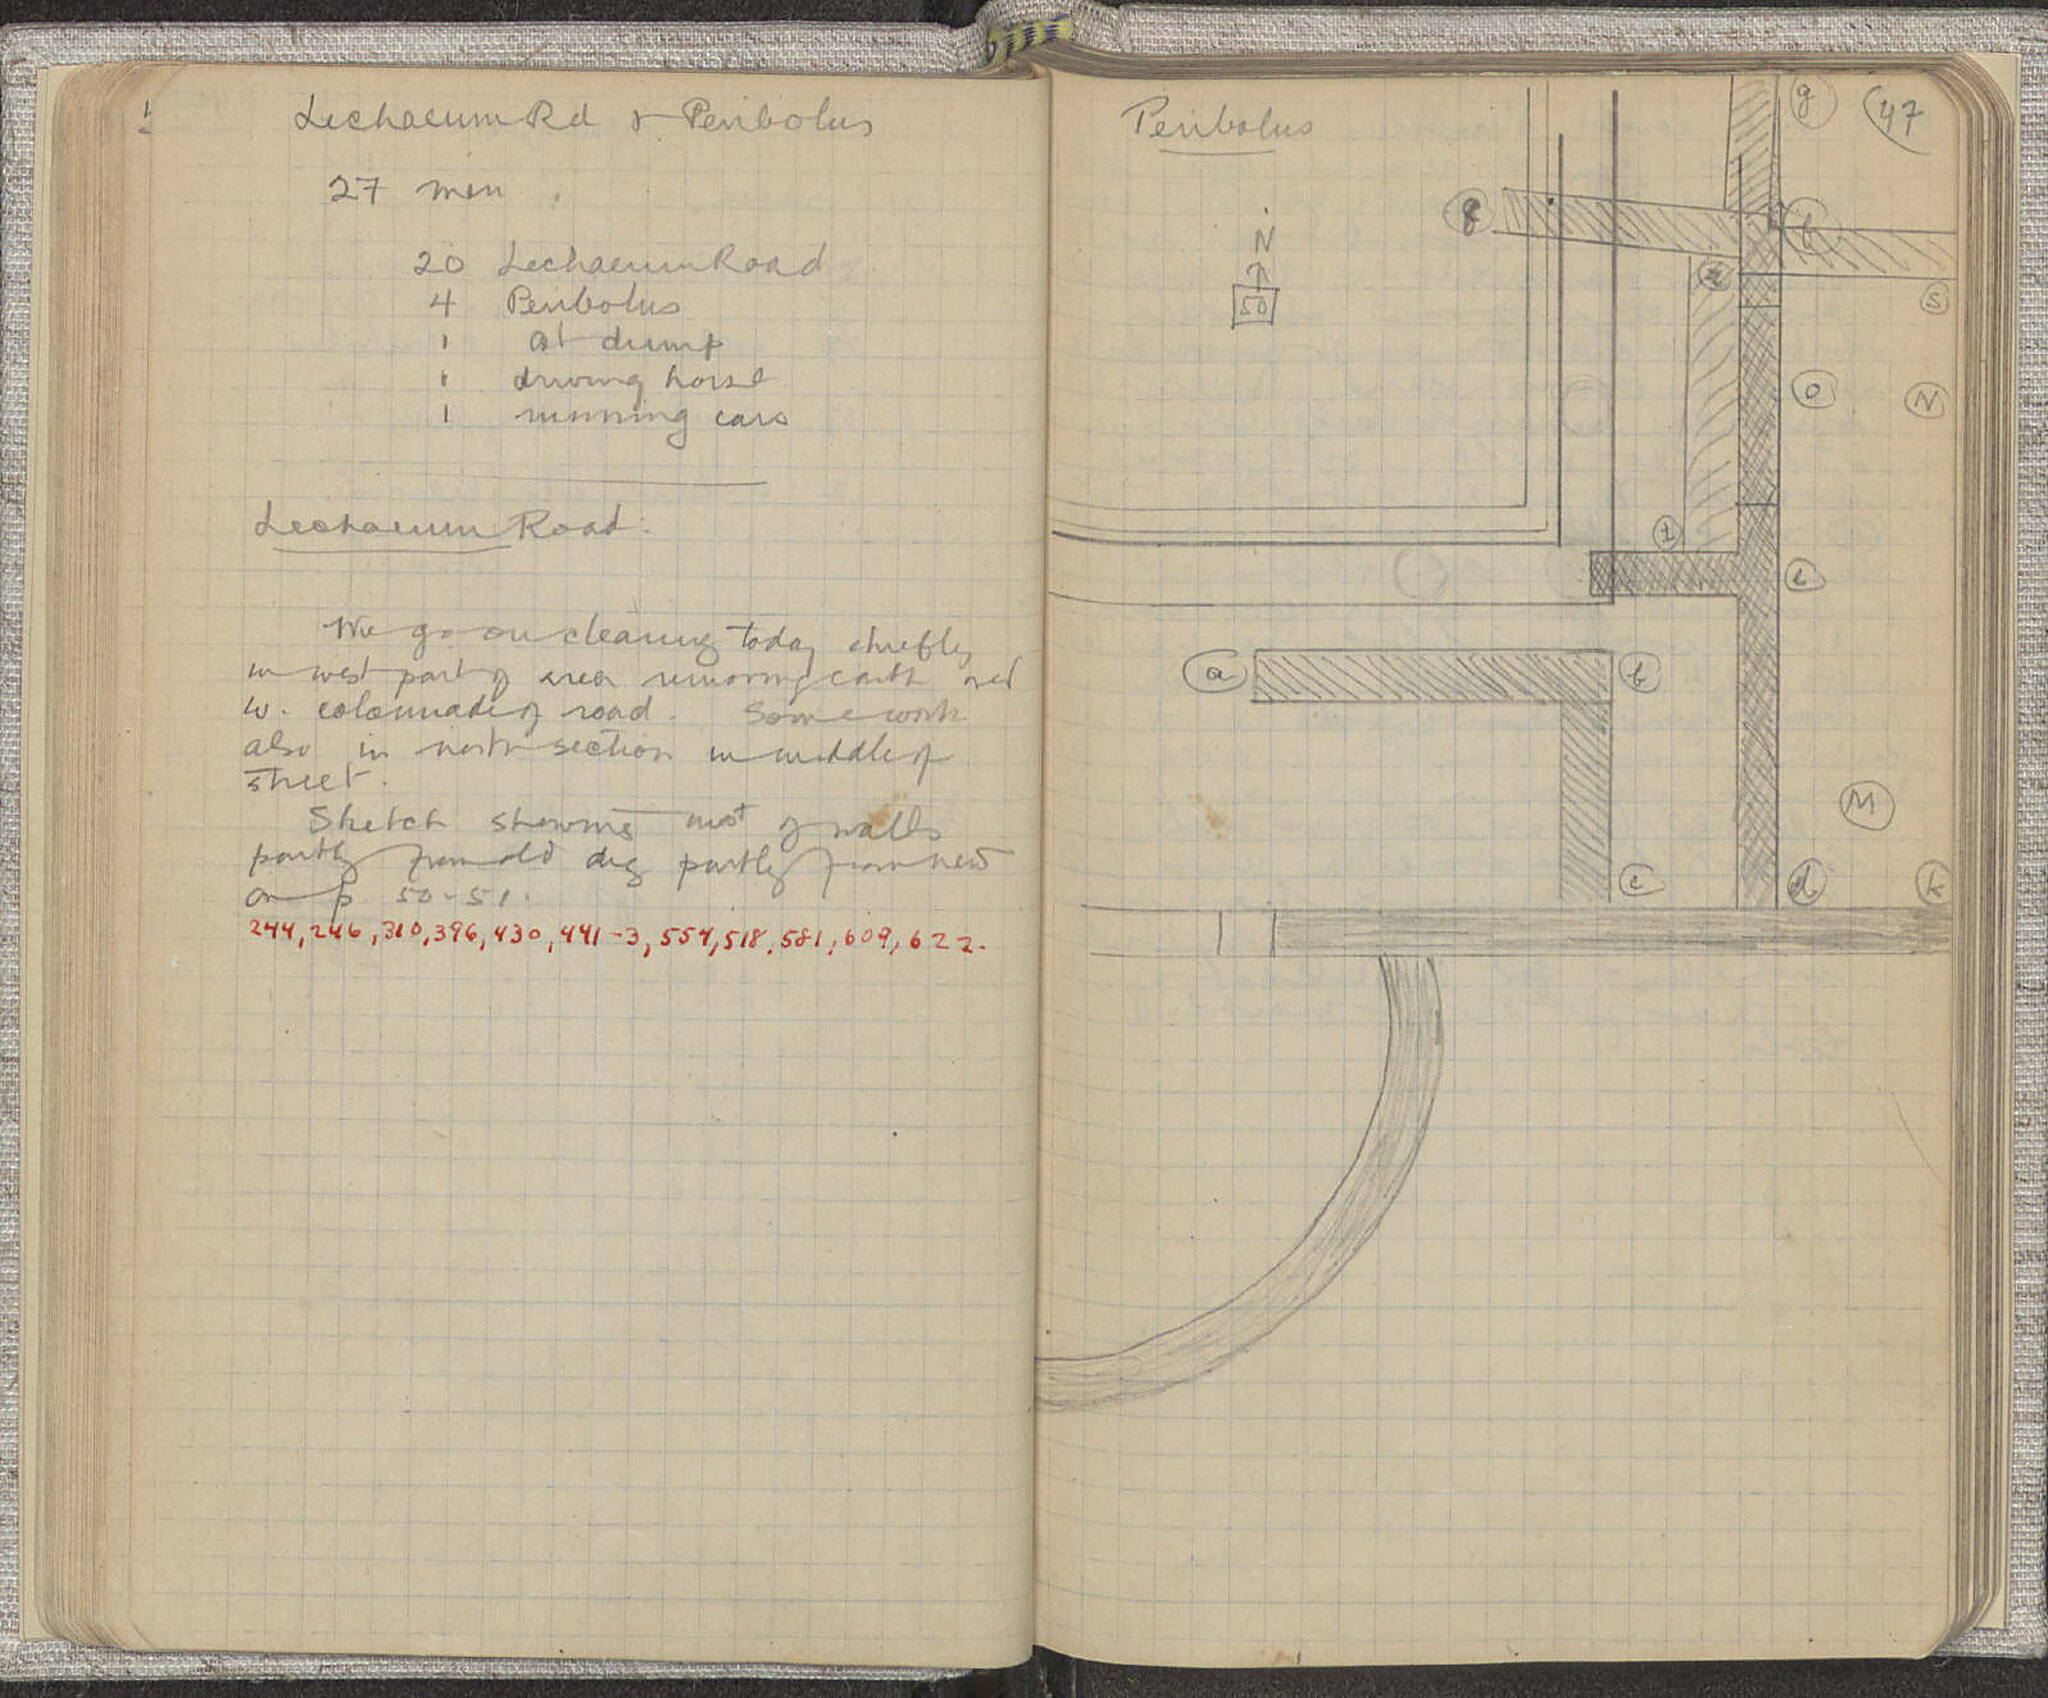 Lechaeum Rd & Peribolus
27 men
20 Lechaeum Road
4 Peribolus
1 at dump
1 driving horse
1 running cars
Lechaeum Road.
We go on clearing today chiefly
in west part of area removing earth over
W. colonnade of road. Some work
also in north section in middle of
street.
Sketch showing most of walls
partly from old dig partly from new
on p. 50-51.
244, 246, 310, 396, 430, 441-3, 554, 518, 581, 609, 622.
Peribolus
47
g
f
h
N
50
s
o
N
t
i
a
b
M
c
d
k